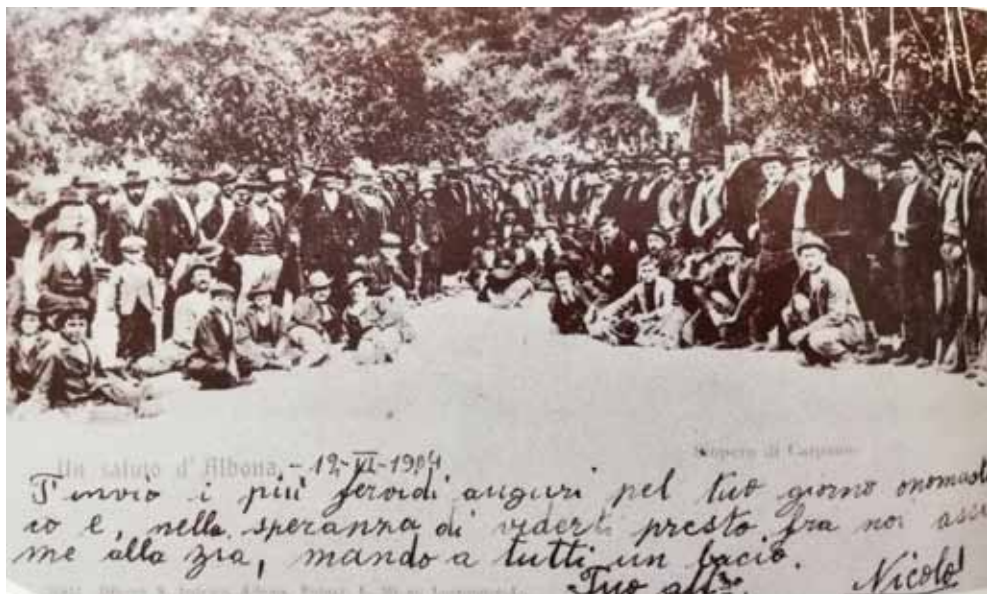 Un saluto d'Albona, - 12-VI-1904
Sciopero di Carpano.
T'invio i più fervidi auguri pel tuo giorno onomast
co e, nella speranza di viderti presto fra noi assi
me alla zia, mando a tutti un bacio.
Tuo aff.mo Nicolò